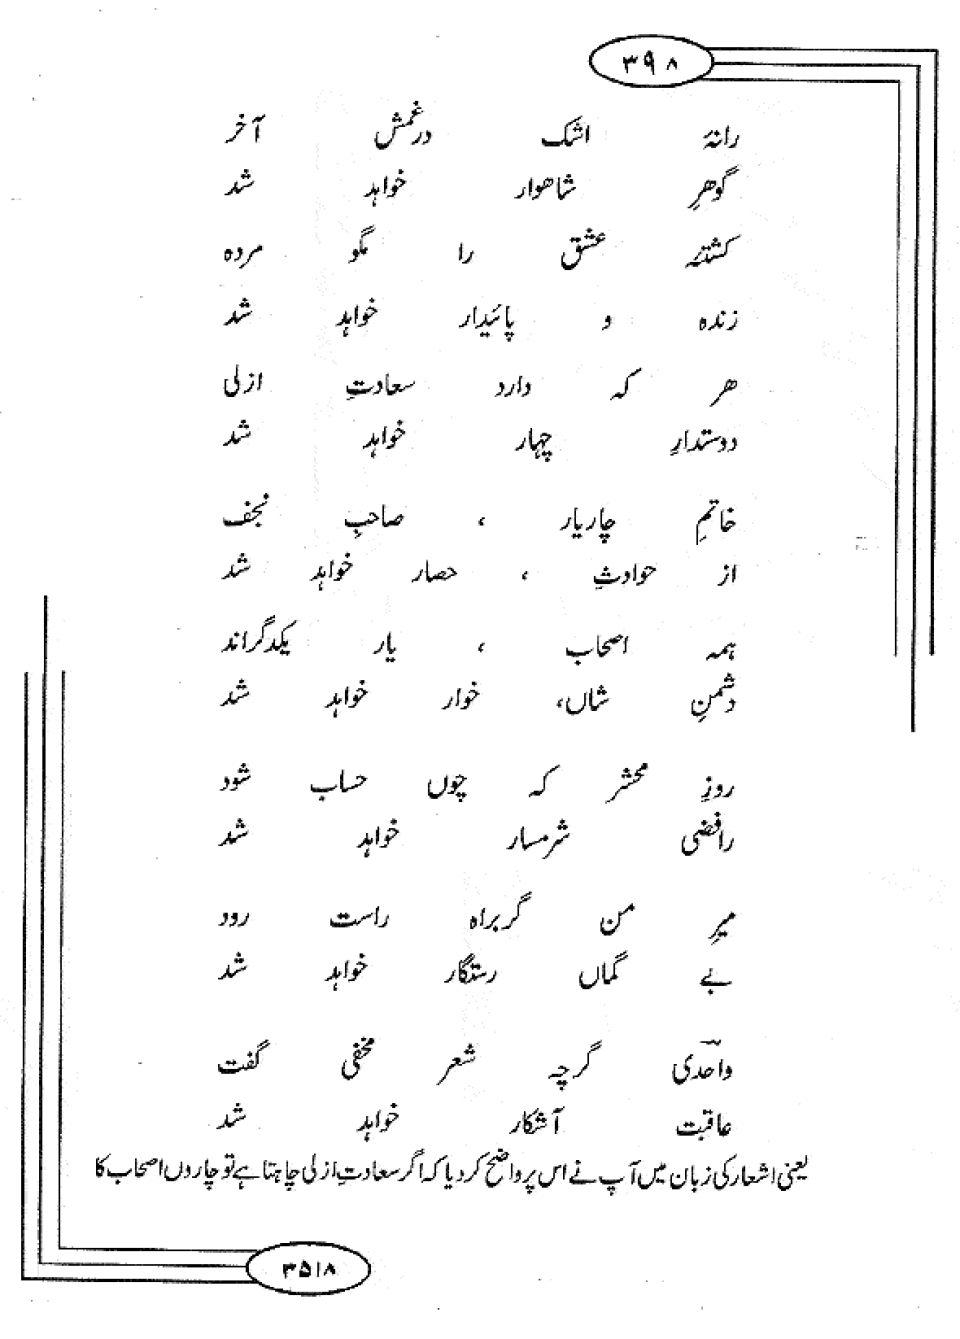 ۳۹۸
رانۂ اشک درغمش آخر
گوھرِ شاھوار خواہد شد
کشتۂ عشق را مگو مردہ
زندہ و پائیدار خواہد شد
ھر کہ دارد سعادتِ ازلی
دوستدارِ چہار خواہد شد
خاتمِ چاریار ، صاحبِ نجف
از حوادثِ ، حصار خواہد شد
ہمہ اصحاب ، یار یکدگراند
دشمنِ شاں، خوار خواہد شد
روزِ محشر کہ چوں حساب شود
رافضی شرمسار خواہد شد
میرِ من گربراہ راست رود
بے گماں رستگار خواہد شد
واحدی گرچہ شعر مخفی گفت
عاقبت آشکار خواہد شد
یعنی اشعار کی زبان میں آپ نے اس پر واضح کر دیا کہ اگر سعادتِ ازلی چاہتا ہے تو چاروں اصحاب کا
۳۵۱۸